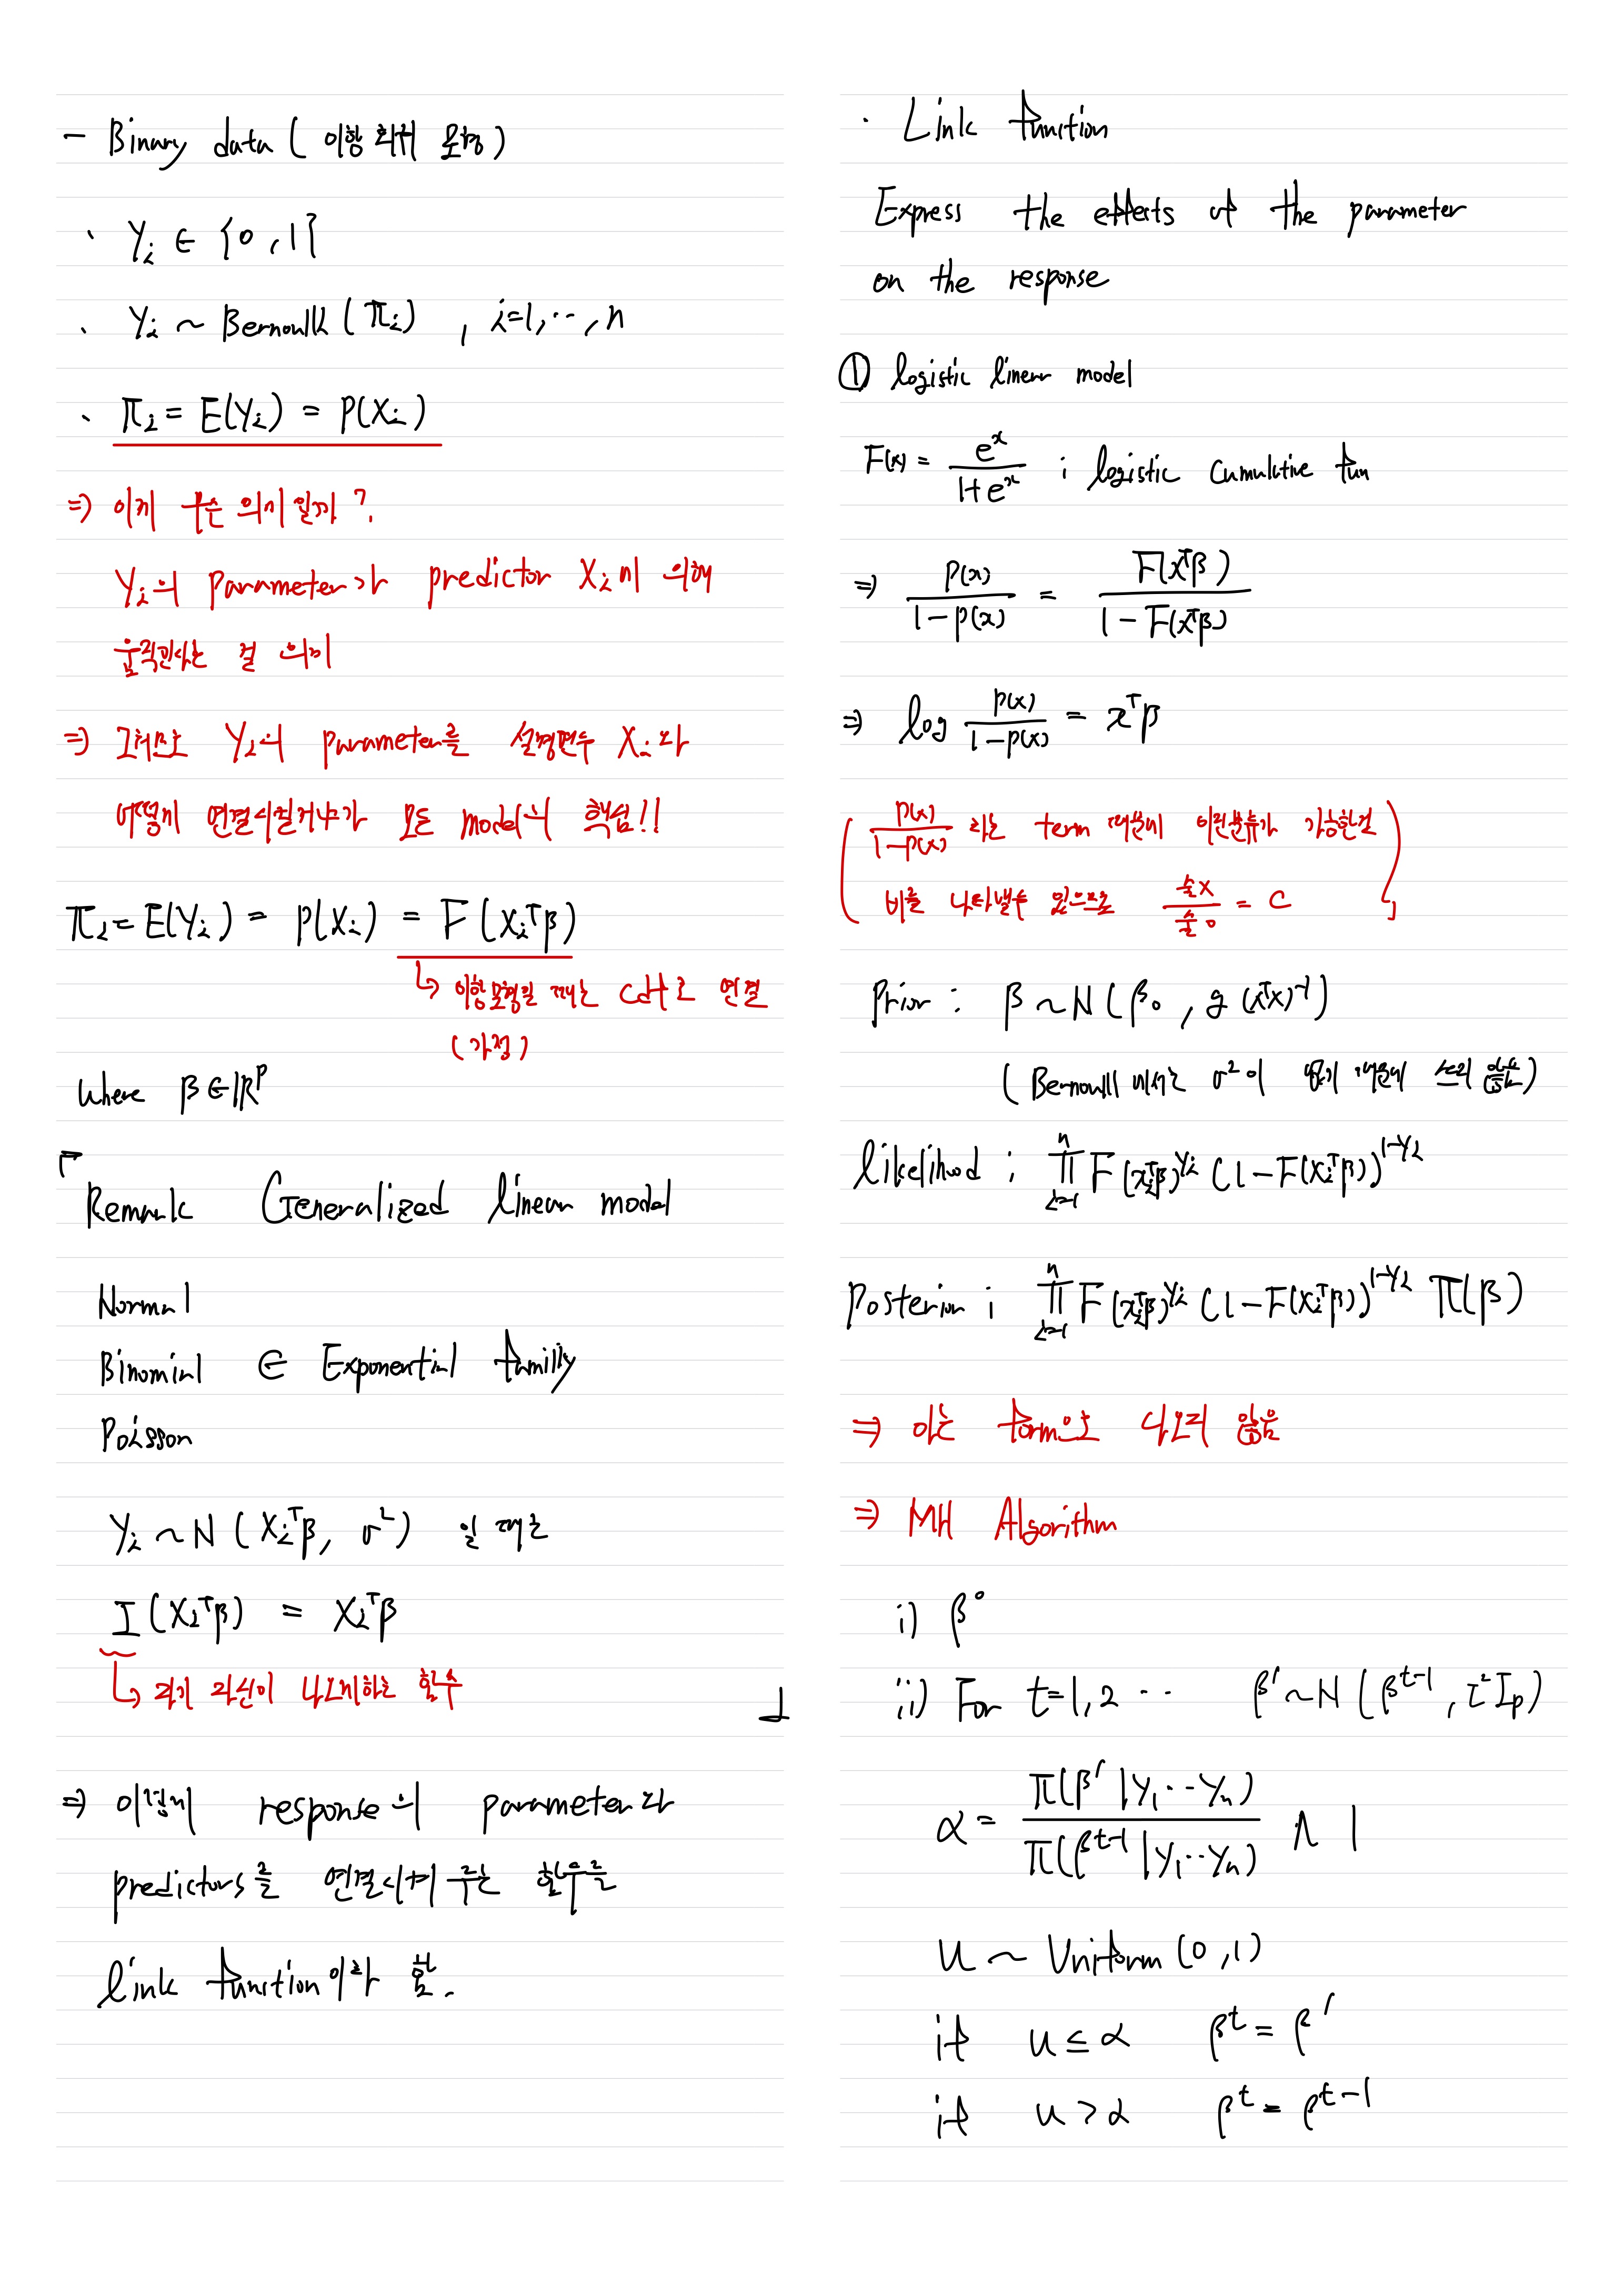 - Binary data ( 이항 회귀 모형 )
· Yᵢ ∈ {0, 1}
· Yᵢ ~ Bernoulli (πᵢ) , i=1, ⋯, n
· πᵢ = E(Yᵢ) = P(Xᵢ)
⇒ 이게 무슨 의미일까?
Yᵢ의 parameter가 predictor Xᵢ에 의해
움직인다는 걸 의미
⇒ 그러므로 Yᵢ의 parameter를 설명변수 Xᵢ와
어떻게 연결시킬거냐가 모든 model의 핵심!!
πᵢ = E(Yᵢ) = P(Xᵢ) = F (Xᵢᵀβ)
↳ 이항모형일 때는 cdf로 연결
(가정)
where β ∈ ℝᵖ
「Remark Generalized linear model
Normal
Binomial ∈ Exponential family
Poisson
Yᵢ ~ N (Xᵢᵀβ, σ²) 일 때는
I (Xᵢᵀβ) = Xᵢᵀβ
↳ 자기 자신이 나오게하는 함수 」
⇒ 이렇게 response의 parameter와
predictors를 연결시켜 주는 함수를
link function이라 함.
· Link function
Express the effects of the parameter
on the response
① logistic linear model
F(x) = eˣ / (1+eˣ) ; logistic cumulative fun
⇒ P(x) / (1-P(x)) = F(xᵀβ) / (1-F(xᵀβ))
⇒ log P(x) / (1-P(x)) = xᵀβ
( P(x) / (1-P(x)) 라는 term 때문에 이런분류가 가능한것
비를 나타낼수 있으므로 술x / 술o = C )
Prior : β ~ N (β₀, g (XᵀX)⁻¹)
( Bernoulli 에서는 σ²이 없기 때문에 쓰지 않음 )
likelihood ; ∏ⁿᵢ₌₁ F(xᵢᵀβ)^Yᵢ (1-F(xᵢᵀβ))^(1-Yᵢ)
Posterior ; ∏ⁿᵢ₌₁ F(xᵢᵀβ)^Yᵢ (1-F(xᵢᵀβ))^(1-Yᵢ) π(β)
⇒ 아는 form으로 나오지 않음
⇒ MH Algorithm
i) β⁰
ii) For t=1, 2 ⋯ β′ ~ N (βᵗ⁻¹, τ²Iₚ)
α = π(β′ | Y₁⋯Yₙ) / π(βᵗ⁻¹ | Y₁⋯Yₙ) ∧ 1
u ~ Uniform (0, 1)
if u ≤ α βᵗ = β′
if u > α βᵗ = βᵗ⁻¹